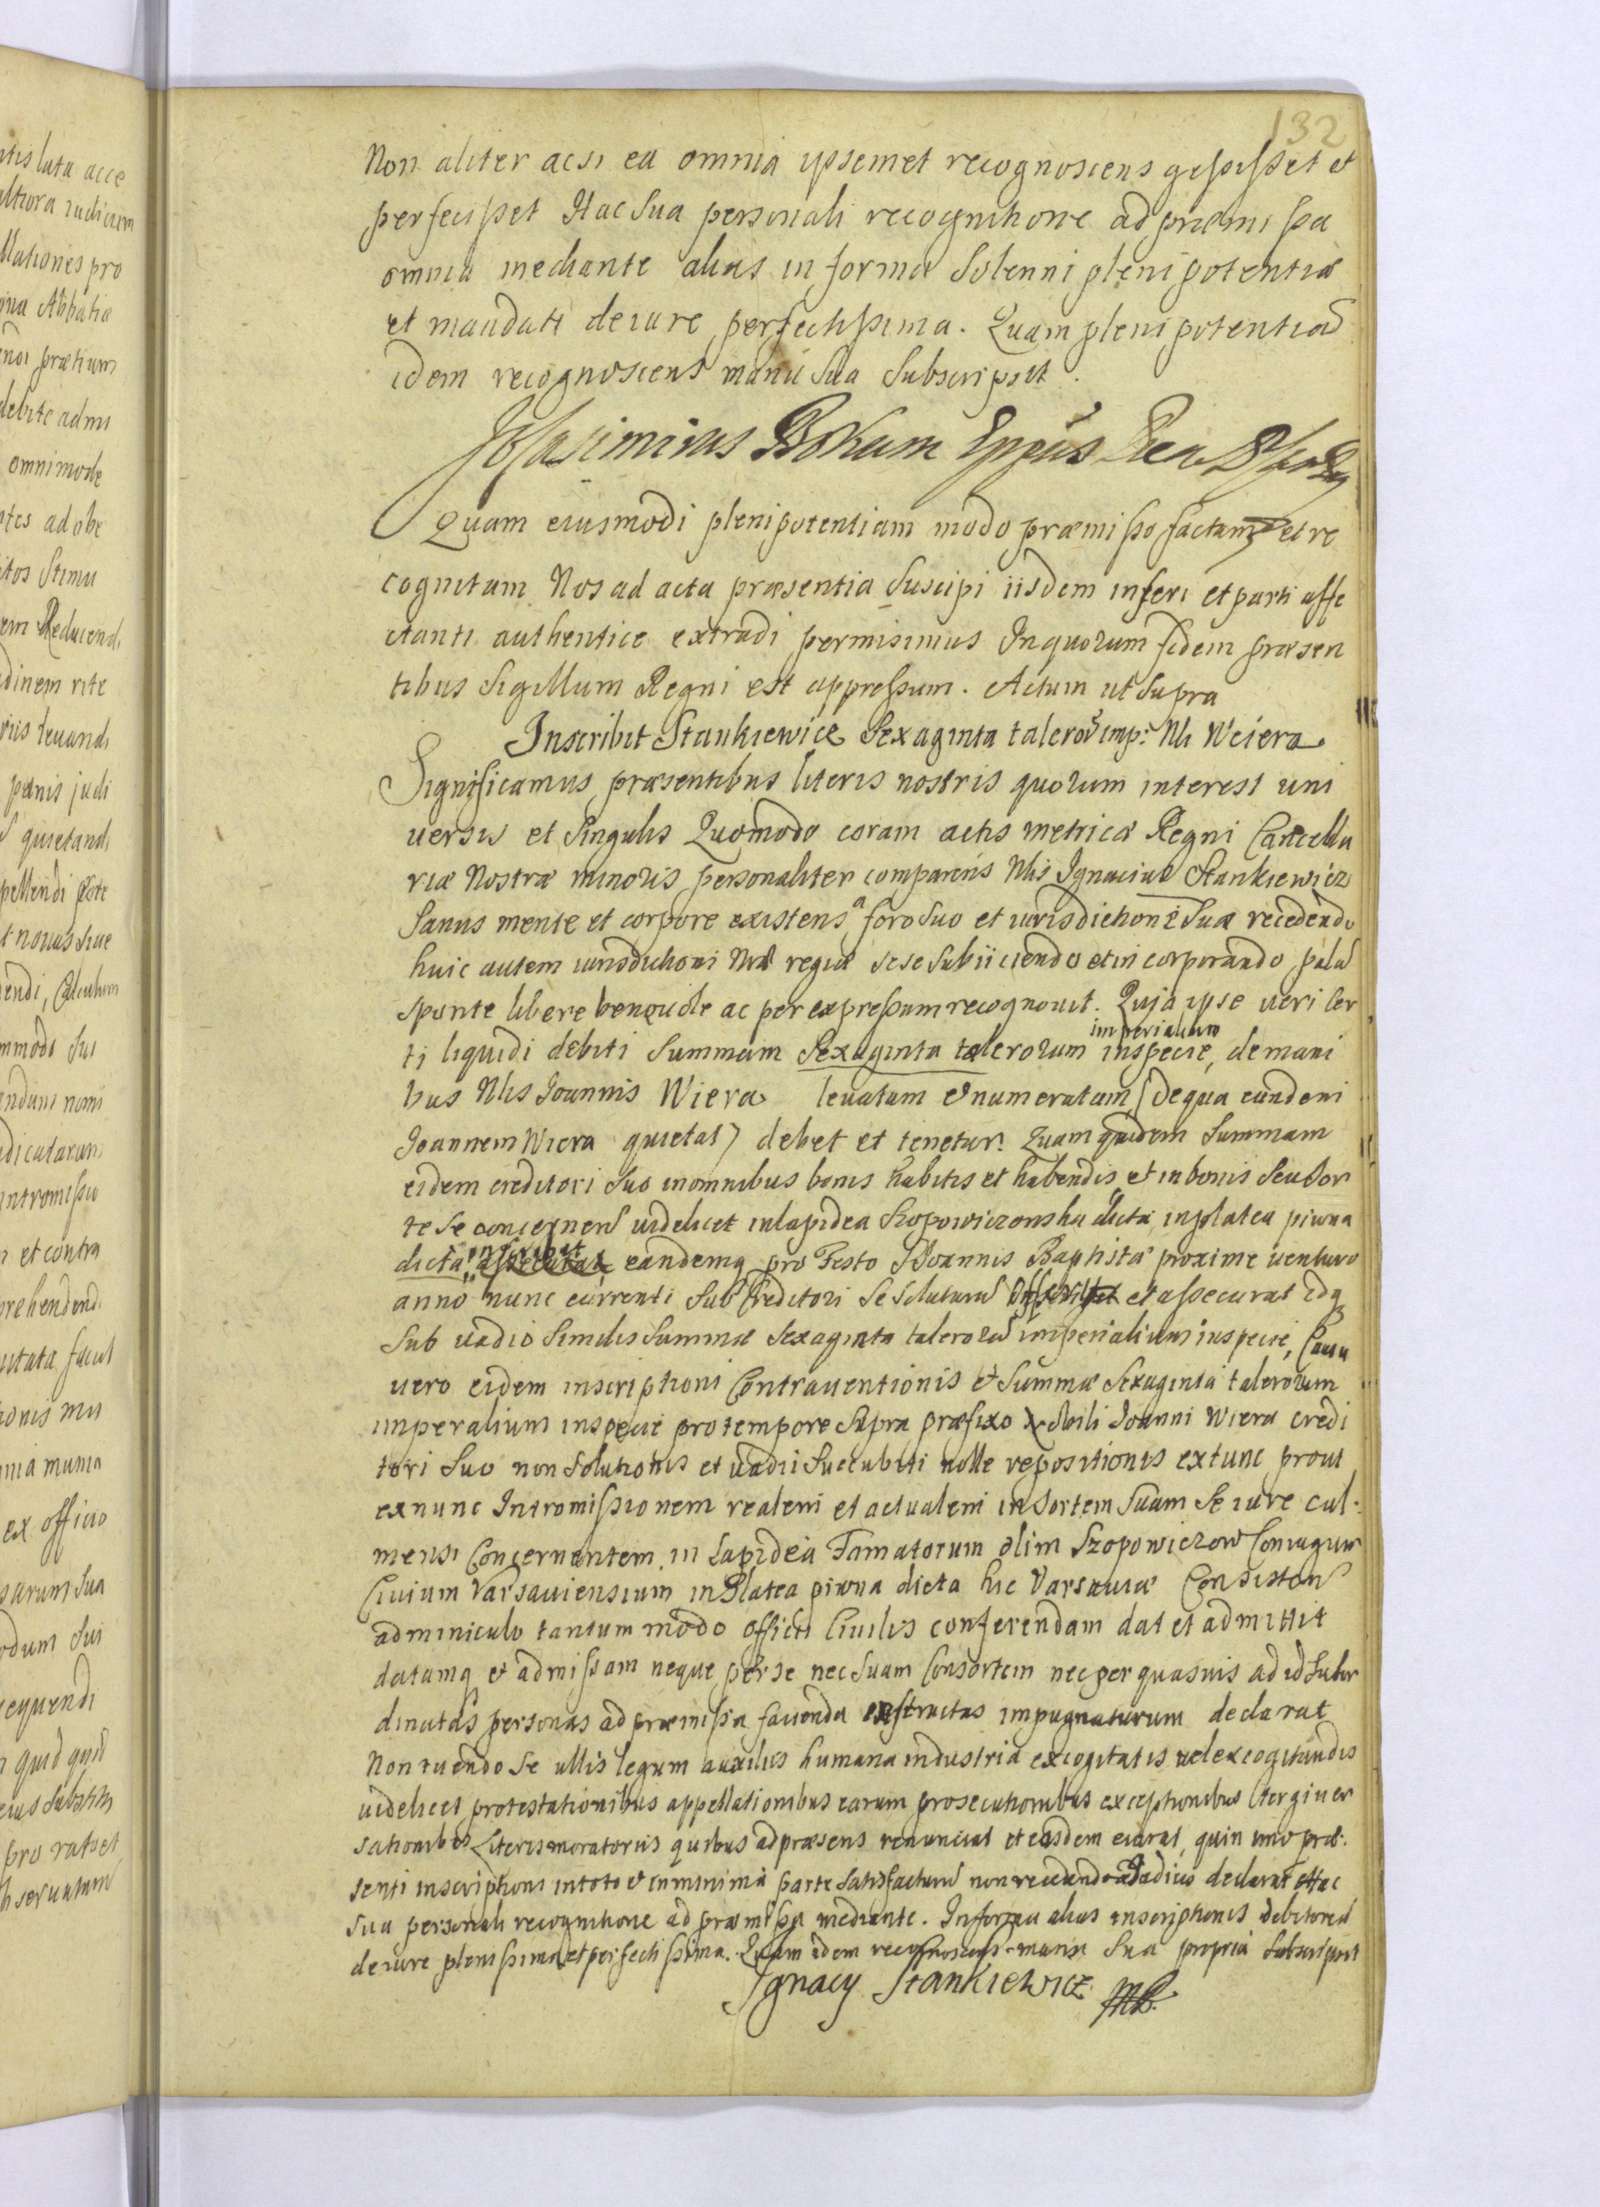 132
Non aliter acsi ea omnia ipsemet recognoscens gessisset et
perfecisset Hac sua personali recognitione ad præmissa
omnia mediante alias in forma solenni plenipotentiæ
et mandati de iure perfectissima. Quam plenipotentiã
idem recognoscens manu sua subscripsit.
Bokum Eppus
Quam eiusmodi plenipotentiam modo præmisso factam et re
cognitam Nos ad acta præsentia suscipi iisdem inseri et parti affe
ctanti authentice extradi permisimus In quorum fidem præsen
tibus Sigillum Regni est appressum. Actum ut supra
Inscribit Stankiewice Sexaginta talerorũ imp: Nli Weiera
Significamus præsentibus literis nostris quorum interest uni
versis et singulis Quomodo coram actis metricæ Regni Cancella
riæ Nostræ minoris personaliter comparens Nlis Ignacius Stankiewicz
sanus mente et corpore existens a foro suo et iurisdictione sua recedendo
huic autem iurisdictioni Nræ regiæ sese subiiciendo et incorporando palã
sponte libere benevole ac per expressum recognovit. Quia ipse veri cer
ti liquidi debiti summam Sexaginta talerorum imperialium inspecie, de mani
bus Nlis Joannis Wiera levatam & numeratam (de qua eundem
Joannem Wiera quietat) debet et tenetur. Quam quidem summam
eidem creditori suo in omnibus bonis habitis et habendis et in bonis seu sor
te se concernen videlicet in lapidea Szopowiczonska dicta in platea piwna
dicta inscribit eandemq pro Festo S Joannis Baptistæ proxime venturo
anno nunc currenti sub Creditori se soluturũ et assecurat idq
sub vadio similis summæ sexaginta talerorũ imperialium inspecie, Casu
vero eidem inscriptioni Contraventionis et summæ sexaginta talerorum
imperalium inspecie pro tempore supra præfixo Nobili Joanni Wiera credi
tori suo non solutionis et vadii succubiti nolle repositionis extunc prout
exnunc Intromissionem realem et actualem in sortem suam se iure cul-
mensi Concernentem in Lapidea Famatorum olim Szopowiczow Coniugum
Civium Varsaviensium in Platea piwna dicta hic Varsaviæ Consisten
adminiculo tantummodo officii Civilis conferendam dat et admittit
datamq et admissam neque per se nec suam Consortem nec per quasuis ad id subor
dinatas personas ad præmissa favenda instructas impugnaturum declarat
Non tuendo se ullis legum auxiliis humana industria excogitatis vel excogitandis
videlicet protestationibus appellationibus earum prosecutionibus exceptionibus tergiver
sationibus Literis moratoriis quibus ad præsens renunciat et easdem eiurat, quin imo præ-
senti inscriptioni in toto & in minima parte satisfacturũ non recedendo declarat Hac
sua personali recognitione ad præmissa mediante. In forma alias inscriptionis debitorea
de iure plenissima et perfectissima. Quam idem recognoscens manu sua propria subscripsit
Ignacy Stankiewicz mp